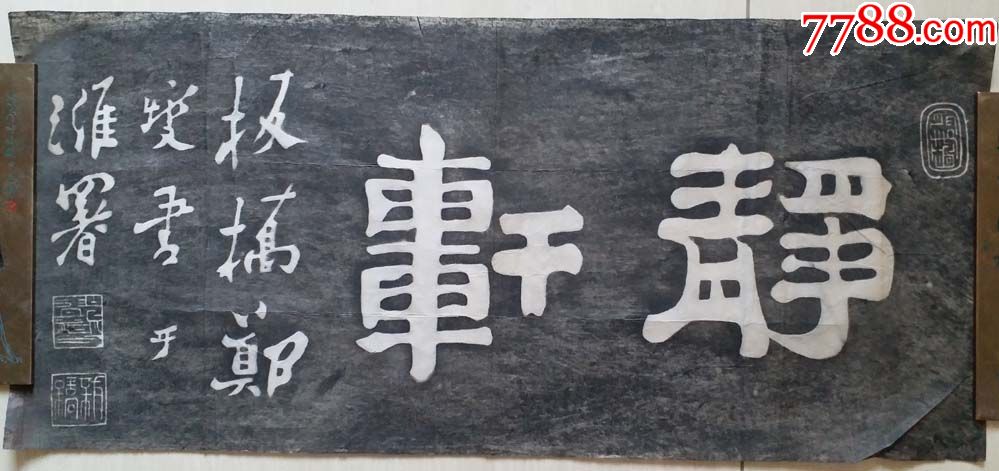 靜軒
板橋鄭
燮書于
濰署
7788.com